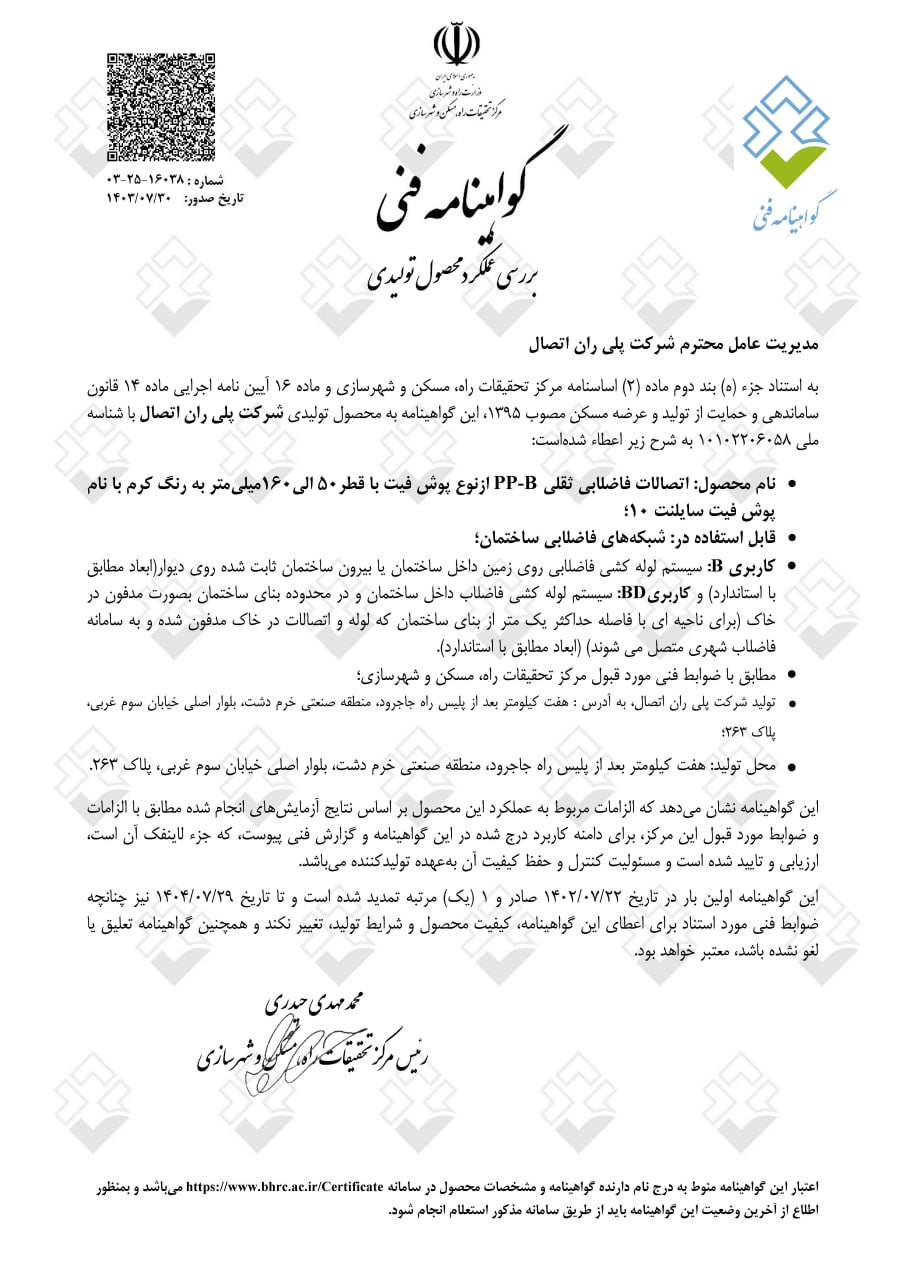 جمهوری اسلامی ایران
وزارت راه و شهرسازی
مرکز تحقیقات راه، مسکن و شهرسازی
شماره : ۱۶۰۳۸-۲۵-۰۳
تاریخ صدور: ۱۴۰۳/۰۷/۳۰
گواهینامه فنی
گواهینامه فنی
بررسی عملکرد محصول تولیدی
مدیریت عامل محترم شرکت پلی ران اتصال
به استناد جزء (ه) بند دوم ماده (۲) اساسنامه مرکز تحقیقات راه، مسکن و شهرسازی و ماده ۱۶ آیین نامه اجرایی ماده ۱۴ قانون
ساماندهی و حمایت از تولید و عرضه مسکن مصوب ۱۳۹۵، این گواهینامه به محصول تولیدی شرکت پلی ران اتصال با شناسه
ملی ۱۰۱۰۲۲۰۶۰۵۸ به شرح زیر اعطاء شده‌است:
• نام محصول: اتصالات فاضلابی ثقلی PP-B ازنوع پوش فیت با قطر۵۰ الی۱۶۰میلی‌متر به رنگ کرم با نام
پوش فیت سایلنت ۱۰؛
• قابل استفاده در: شبکه‌های فاضلابی ساختمان؛
• کاربری B: سیستم لوله کشی فاضلابی روی زمین داخل ساختمان یا بیرون ساختمان ثابت شده روی دیوار(ابعاد مطابق
با استاندارد) و کاربریBD: سیستم لوله کشی فاضلاب داخل ساختمان و در محدوده بنای ساختمان بصورت مدفون در
خاک (برای ناحیه ای با فاصله حداکثر یک متر از بنای ساختمان که لوله و اتصالات در خاک مدفون شده و به سامانه
فاضلاب شهری متصل می شوند) (ابعاد مطابق با استاندارد).
• مطابق با ضوابط فنی مورد قبول مرکز تحقیقات راه، مسکن و شهرسازی؛
• تولید شرکت پلی ران اتصال، به آدرس : هفت کیلومتر بعد از پلیس راه جاجرود، منطقه صنعتی خرم دشت، بلوار اصلی خیابان سوم غربی،
پلاک ۲۶۳؛
• محل تولید: هفت کیلومتر بعد از پلیس راه جاجرود، منطقه صنعتی خرم دشت، بلوار اصلی خیابان سوم غربی، پلاک ۲۶۳.
این گواهینامه نشان می‌دهد که الزامات مربوط به عملکرد این محصول بر اساس نتایج آزمایش‌های انجام شده مطابق با الزامات
و ضوابط مورد قبول این مرکز، برای دامنه کاربرد درج شده در این گواهینامه و گزارش فنی پیوست، که جزء لاینفک آن است،
ارزیابی و تایید شده است و مسئولیت کنترل و حفظ کیفیت آن به‌عهده تولیدکننده می‌باشد.
این گواهینامه اولین بار در تاریخ ۱۴۰۲/۰۷/۲۲ صادر و ۱ (یک) مرتبه تمدید شده است و تا تاریخ ۱۴۰۴/۰۷/۲۹ نیز چنانچه
ضوابط فنی مورد استناد برای اعطای این گواهینامه، کیفیت محصول و شرایط تولید، تغییر نکند و همچنین گواهینامه تعلیق یا
لغو نشده باشد، معتبر خواهد بود.
محمد مهدی حیدری
رئیس مرکز تحقیقات راه، مسکن و شهرسازی
اعتبار این گواهینامه منوط به درج نام دارنده گواهینامه و مشخصات محصول در سامانه https://www.bhrc.ac.ir/Certificate می‌باشد و بمنظور
اطلاع از آخرین وضعیت این گواهینامه باید از طریق سامانه مذکور استعلام انجام شود.